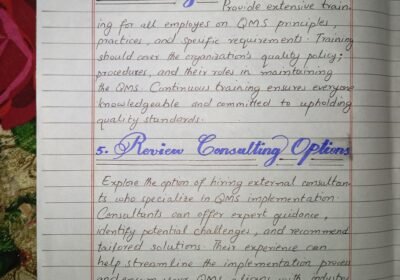 Provide extensive train-
ing for all employes on QMS principles,
practices, and specific requirements. Training
should cover the organization's quality policy;
procedures, and their roles in maintaining
the QMS. Continuous training ensures everyone
knowledgeable and committed to upholding
quality standards.
5. Review Consulting Options
Explore the option of hiring external consultan-
ts who specialize in QMS implementation.
Consultants can offer expert guidance,
identify potential challenges, and recommend
tailored solutions. Their experience can
help streamline the implementation process
and ensure your QMS aligns with industry